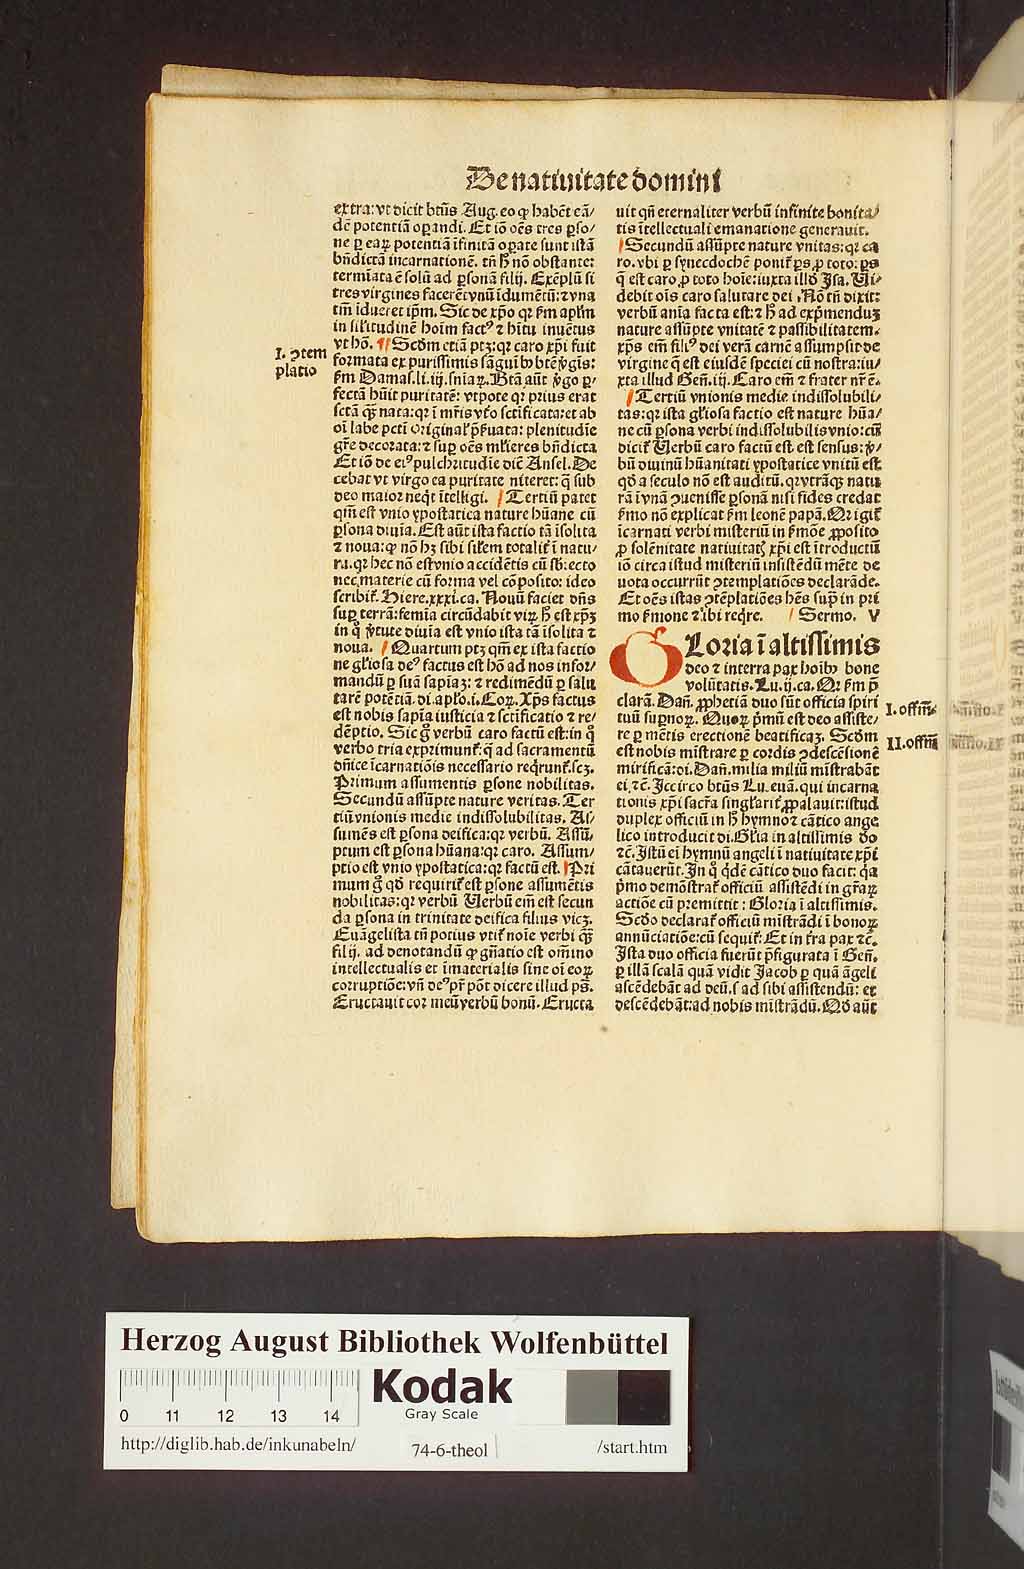 De natiuitate domini
extra: vt dicit btūs Aug. eo ꝙ habēt eā/
dē potentiā oꝑandi. Et iō oēs tres ꝑso/
ne ꝑ eaꝝ potentiā īfinitā oꝑate sunt istā
bn̄dictā incarnationē. tn̄ hͦ nō obstante:
termīata ē solū ad ꝑsonā filij. Exēplū si
tres virgines facerēt vnū īdumētū: ⁊ vna
tm̄ īdueret ip̄m. Sic de xp̄o qꝛ ẜm apl̓m
in sil̓itudinē hoīm factꝰ ⁊ hītu inuētus
vt hō. ¶ Scd̓m etiā ptꝫ: qꝛ caro xp̄i fuit
formata ex purissimis sāguībꝰ btē v̓gīs:
ẜm Damaſ. li. iij. sn̄iaꝝ. Btā aūt v̓go ꝑ/
fectā hūit puritatē: vtpote qꝛ prius erat
sctā qꝫ̄ nata: qꝛ ī mr̄is vt̓o sctīficata: et ab
oī labe pctī original̓ p̄ẜuata: plenitudīe
gr̄e decorata: ⁊ suꝑ oēs ml̓ieres bn̄dicta
Et iō de eiꝰ pulchritudīe dic̄ Ansel. De
cebat vt virgo ea puritate niteret: q̄ sub
deo maior neq̄t ītelligi. ¶ Tertiū patet
qm̄ est vnio ypostatica nature hūane cū
ꝑsona diuīa. Est aūt ista factio tā īsolita
⁊ noua: ꝙ nō hꝫ sibi sil̓em totalit̓ ī natu/
ra. qꝛ hec nō est vnio accidētis cū sb̓iecto
nec materie cū forma vel cōposito: ideo
scribit̓. Hiere. xxxi. ca. Nouū faciet dn̄s
suꝑ terrā: femīa circūdabit viꝝ. hͦ est xp̄ꝫ
in q̊ v̓tute diuīa est vnio ista tā īsolita ⁊
noua. ¶ Quartum ptꝫ qm̄ ex ista factio
ne gl̓iosa deꝰ factus est hō ad nos infor/
mandū ꝑ suā sapīaꝫ: ⁊ redimēdū ꝑ salu
tarē potētiā. di. apl̓o. i. Coꝝ. Xp̄s factus
est nobis sapīa iusticia ⁊ sctīficatio ⁊ re/
dēptio. Sic g̊ verbū caro factū est: in q̊
verbo tria exprimunt̓: q̄ ad sacramentū
dn̄ice īcarnatiōis necessario req̄runt̓. scꝫ.
Primum assumentis ꝑsone nobilitas.
Secundū assūpte nature veritas. Ter
tiū vnionis medie indissolubilitas. As/
sumēs est ꝑsona deifica: qꝛ verbū. Assū/
ptum est ꝑsona hūana: qꝛ caro. Assum/
ptio est vnio ypostatica: qꝛ factū est. ¶ Pri
mum g̊ qd̓ requirit̓ est ꝑsone assumētis
nobilitas: qꝛ verbū Verbū em̄ est secun
da ꝑsona in trinitate deifica filius vicꝫ.
Euāgelista tn̄ potius vtit̓ noīe verbi qꝫ̄
filij. ad denotandū ꝙ gn̄atio est om̄ino
intellectualis et īmaterialis sine oī eoꝝ
corruptiōe: vn̄ deꝰ pr̄ pōt dicere illud ps̄.
Eructauit cor meū verbū bonū. Eructa
I. ꝯtem
platio
uit qn̄ eternaliter verbū infinite bonita/
tis ītellectuali emanatione generauit.
¶ Secundū assūpte nature vnitas: qꝛ ca
ro. vbi ꝑ synecdochē ponit̓ ꝑs ꝓ toto: ꝑs
q̄ est caro ꝓ toto hoīe: iuxta illd̓ Isa. Vi/
debit oīs caro salutare dei. Nō tn̄ dixit:
verbū anīa facta est: ⁊ hͦ ad exp̄menduꝫ
nature assūpte vnitatē ⁊ passibilitatem.
xp̄s em̄ filiꝰ dei verā carnē assumpsit de
virgine q̄ est eiusdē speciei cū nostra: iu/
xta illud Gen̄. iij. Caro em̄ ⁊ frater nr̄ ē.
¶ Tertiū vnionis medie indissolubili/
tas: qꝛ ista gl̓iosa factio est nature hūa/
ne cū ꝑsona verbi indissolubilis vnio: cū
dicit̓ Verbū caro factū est. est sensus: v̓/
bū diuinū hūanitati ypostatice vnitū est.
qd̓ a seculo nō est auditū. qꝛ vtrāqꝫ natu
rā ī vnā ꝯuenisse ꝑsonā nisi fides credat
ẜmo nō explicat ẜm leonē papā. Qꝛ igit̓
īcarnati verbi misteriū in ẜmōe ꝓposito
ꝓ solēnitate natiuitatꝭ xp̄i est ītroductū
iō circa istud misteriū insistēdū mēte de
uota occurrūt ꝯtemplatiōes declarāde.
Et oēs istas ꝯtēplatiōes hēs supͣ in pri
mo ẜmone ⁊ ibi reqͥre. ¶ Sermo. V
GLoria ī altissimis
deo ⁊ in terra pax hoībꝰ bone
volūtatis. Lu. ij. ca. Qꝛ ẜm p̄
clarā. Dan̄. ꝓphetiā duo sūt officia spiri
tuū suꝑnoꝝ. Quoꝝ pͥmū est deo assiste/
re ꝑ mētis erectionē beatificaꝫ. Scd̓m
est nobis mīstrare ꝑ cordis ꝯdescēsionē
mirificā: di. Dan̄. milia miliū mīstrabāt
ei. ⁊c̄. Iccirco btūs Lu. euā. qui incarna
tionis xp̄i sacrͣa singl̓arit̓ ꝓpalauit: istud
duplex officiū in hͦ hymno ⁊ cātico ange
lico introducit di. Gl̓ia in altissimis do
⁊c̄. Istū ei hymnū angeli ī natiuitate xp̄i
cātauerūt. In q̊ qͥdē cātico duo facit: qͣa
pͥmo demōstrat̓ officiū assistēdi in gr̄aꝝ
actiōe cū premittit: Gloria ī altissimis.
Scd̓o declarat̓ officiū mīstrādi ī bonoꝝ
annūciatiōe: cū sequit̓: Et in t̓ra pax ⁊c̄.
Ista duo officia fuerūt p̄figurata ī Gen̄.
ꝑ illā scalā quā vidit Jacob ꝑ quā āgeli
ascēdebāt ad deū. s̓ ad sibi assistendū: et
descēdebāt: ad nobis mīstrādū. Qd̓ aūt
I. offm̄.
II. offm̄
Herzog August Bibliothek Wolfenbüttel
0 11 12 13 14
Kodak
Gray Scale
http://diglib.hab.de/inkunabeln/ 74-6-theol /start.htm